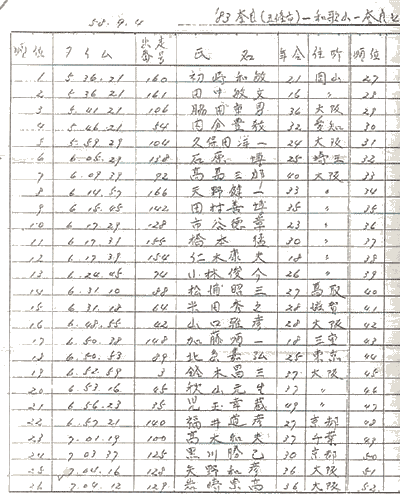 58.9.4 '83 奈良(五條市)-和歌山-奈良
順位 タイム 番号 氏名 年令 住所 順位
1 5.36.21 160 初崎和敏 21 岡山 27
2 5.36.21 161 田中敏文 16 〃 28
3 5.41.21 106 脇田重男 36 大阪 29
4 5.46.21 54 32 愛知 30
5 5.59.29 104 久保田洋一 24 大阪 31
6 6.05.29 138 石原博 25 埼玉 32
7 6.09.39 92 40 大阪 33
8 6.14.57 166 天野健一 33 〃 34
9 6.15.45 142 田村善博 35 〃 35
10 6.17.29 128 市谷徳章 23 〃 36
11 6.17.31 155 橋本猛 30 〃 37
12 6.17.39 154 仁木康夫 18 〃 38
13 6.24.45 74 小林俊介 26 〃 39
14 6.31.10 88 松浦昭三 27 鳥取 40
15 6.31.18 64 米田秀之 28 滋賀 41
16 6.48.55 42 山口雅彦 28 大阪 42
17 6.50.38 148 加藤 一 18 三重 43
18 6.50.53 89 北 弘 25 東京 44
19 6.52.59 3 鈴木昌三 37 大阪 45
20 6.53.16 45 秋山元生 37 〃 46
21 6.56.23 35 児玉幸蔵 49 〃 47
22 6.57.21 140 福井道彦 27 京都 48
23 7.01.19 100 高木和夫 37 千葉 49
24 7.03.37 125 黒川勝己 30 京都 50
25 7.04.16 128 矢野和彦 36 大阪 51
26 7.04.12 129 岩崎 高 36 大阪 52